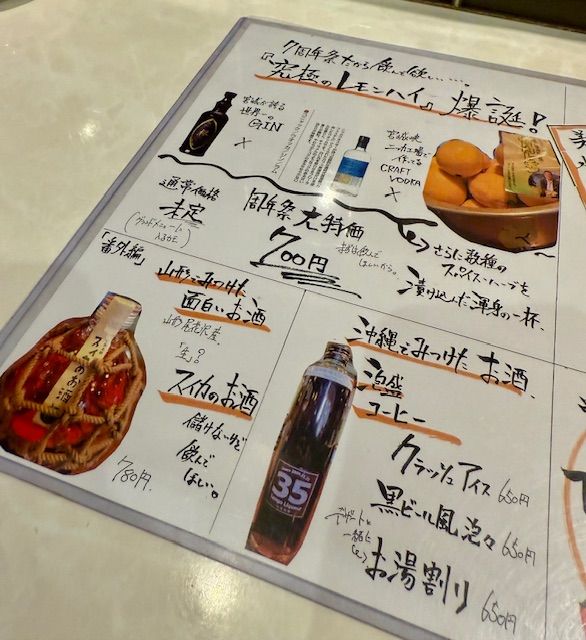 7周年祭だから飲んで欲しい・・・。
『究極のレモンハイ』爆誕!
宮城が誇る
世界一の
GIN
×
宮城峡
ニッカ工場で
作ってる
CRAFT
VODKA
×
通常価格
未定
周年祭 大特価
700円
まずは飲んで
ほしいから。
さらに数種の
スパイス・ハーブを
漬け込んだ渾身の一杯、
「番外編」
山形でみつけた
面白いお酒
山形尾花沢産。
「生」?
スイカのお酒
スイカのお酒
儲けないけど
飲んで
ほしい。
780円.
沖縄でみつけたお酒、
泡盛
コーヒー
35
クラッシュアイス 650円
黒ビール風 泡々 650円
デザートと
一緒に
お湯割り 650円